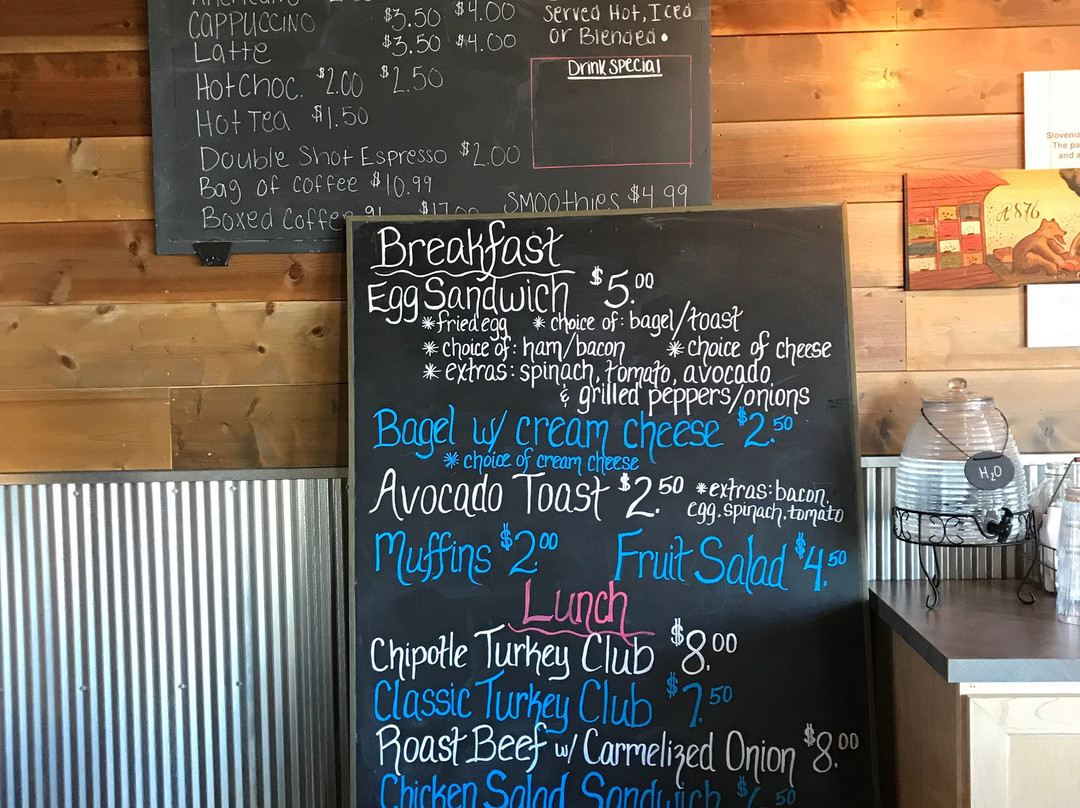 CAPPUCCINO $3.50 $4.00
Latte $3.50 $4.00
Hot Choc. $2.00 $2.50
Hot Tea $1.50
Double Shot Espresso $2.00
Bag of coffee $10.99
Boxed Coffee
Smoothies $4.99
Served Hot, Iced
or Blended.
Drink Special
Breakfast
Egg Sandwich $5.00
*fried egg *choice of: bagel/toast
*choice of: ham/bacon *choice of cheese
*extras: spinach, tomato, avocado
& grilled peppers/onions
Bagel w/ cream cheese $2.50
*choice of cream cheese
Avocado Toast $2.50 *extras: bacon,
egg, spinach, tomato
Muffins $2.00 Fruit Salad $4.50
Lunch
Chipotle Turkey Club $8.00
Classic Turkey Club $7.50
Roast Beef w/ Carmelized Onion $8.00
Chicken Salad Sandwich
Slovenia
The pa
and a
A 876
H2O